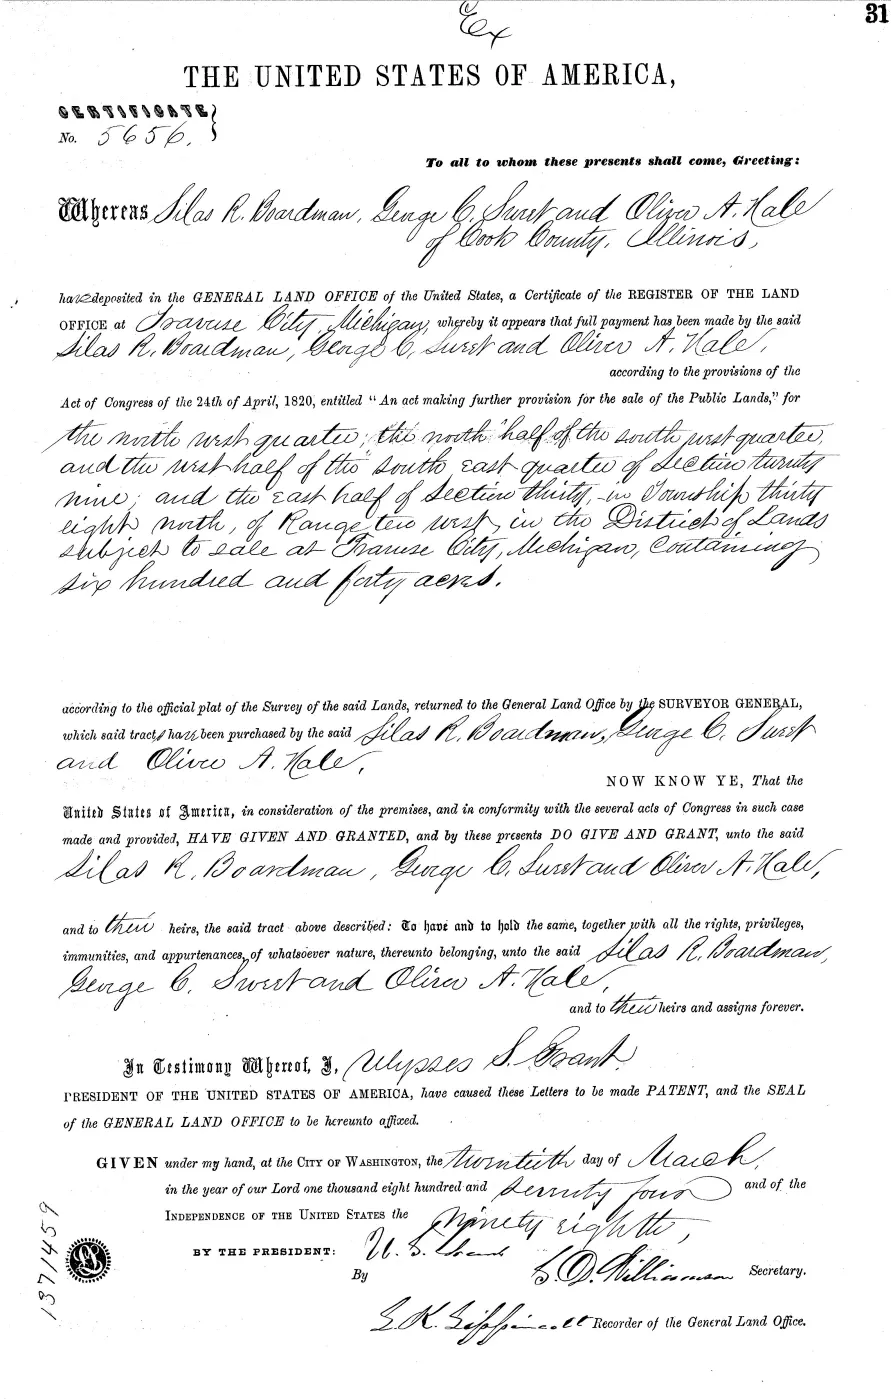 Ex
31
THE UNITED STATES OF AMERICA,
CERTIFICATE
No. 5656.
To all to whom these presents shall come, Greeting:
Whereas Silas R. Boardman, George C. Sweet and Oliver A. Hale
of Cook County, Illinois,
have deposited in the GENERAL LAND OFFICE of the United States, a Certificate of the REGISTER OF THE LAND
OFFICE at Traverse City, Michigan, whereby it appears that full payment has been made by the said
Silas R. Boardman, George C. Sweet and Oliver A. Hale,
according to the provisions of the
Act of Congress of the 24th of April, 1820, entitled "An act making further provision for the sale of the Public Lands," for
the north west quarter, the north half of the south west quarter,
and the west half of the south east quarter of Section twenty
nine, and the east half of Section thirty, in Township thirty
eight north, of Range ten west, in the District of Lands
subject to sale at Traverse City, Michigan, containing
six hundred and forty acres.
according to the official plat of the Survey of the said Lands, returned to the General Land Office by the SURVEYOR GENERAL,
which said tracts have been purchased by the said Silas R. Boardman, George C. Sweet
and Oliver A. Hale,
NOW KNOW YE, That the
United States of America, in consideration of the premises, and in conformity with the several acts of Congress in such case
made and provided, HAVE GIVEN AND GRANTED, and by these presents DO GIVE AND GRANT, unto the said
Silas R. Boardman, George C. Sweet and Oliver A. Hale,
and to their heirs, the said tract above described: To have and to hold the same, together with all the rights, privileges,
immunities, and appurtenances, of whatsoever nature, thereunto belonging, unto the said Silas R. Boardman,
George C. Sweet and Oliver A. Hale,
and to their heirs and assigns forever.
In Testimony Whereof, I, Ulysses S. Grant
PRESIDENT OF THE UNITED STATES OF AMERICA, have caused these Letters to be made PATENT, and the SEAL
of the GENERAL LAND OFFICE to be hereunto affixed.
GIVEN under my hand, at the CITY OF WASHINGTON, the twentieth day of March,
in the year of our Lord one thousand eight hundred and seventy four and of the
INDEPENDENCE OF THE UNITED STATES the ninety eighth,
BY THE PRESIDENT: U. S. Grant
By S. D. Williamson Secretary.
L. K. Lippincott Recorder of the General Land Office.
1371459